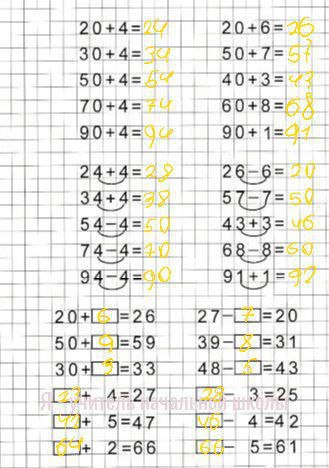 20+4=24 20+6=26
30+4=34 50+7=57
50+4=54 40+3=43
70+4=74 60+8=68
90+4=94 90+1=91
24+4=28 26−6=20
34+4=38 57−7=50
54−4=50 43+3=46
74−4=70 68−8=60
94−4=90 91+1=92
20+6=26 27−7=20
50+9=59 39−8=31
30+3=33 48−5=43
23+ 4=27 28− 3=25
Я - учитель начальной школы
42+ 5=47 46− 4=42
64+ 2=66 66− 5=61